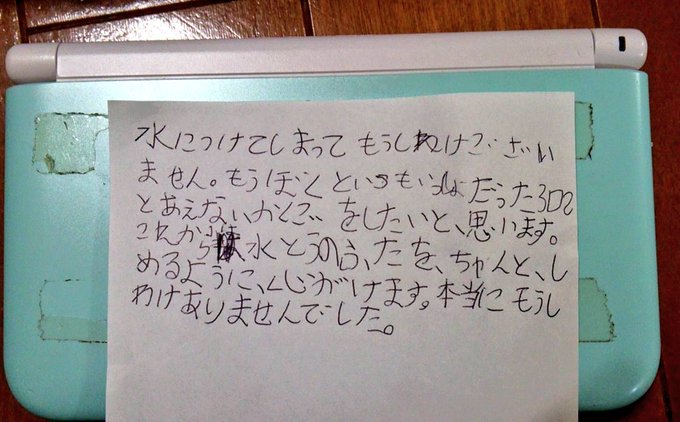 水につけてしまって もうしわけござい
ません。もうぼくといつもいっしょだった3DS
とあえないかくごをしたいと、思います。
これからは水とうのふたを、ちゃんと、し
めるように、心がけます。本当にもうし
わけありませんでした。